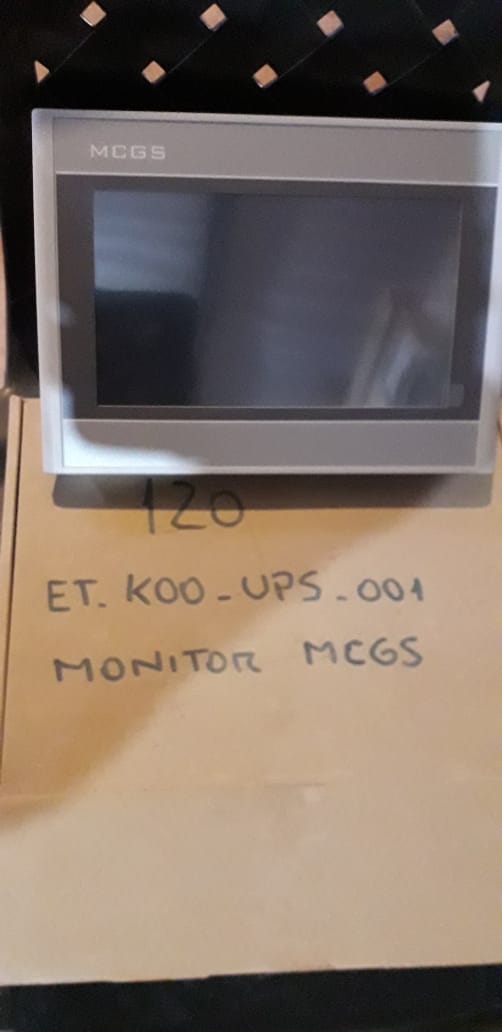 MCGS
120
ET. KOO-UPS-001
MONITOR MCGS